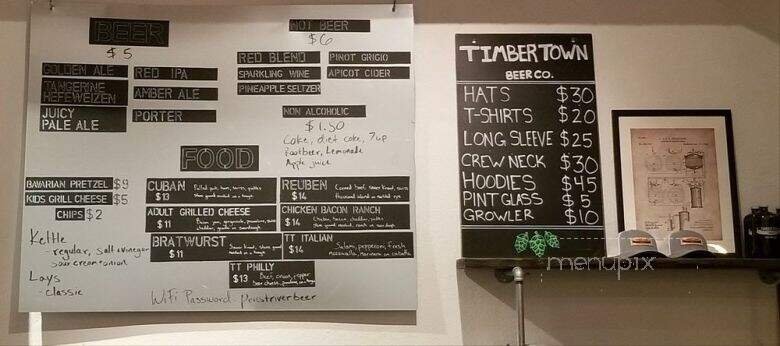 BEER
$5
GOLDEN ALE
RED IPA
TANGERINE
HEFEWEIZEN
AMBER ALE
JUICY
PALE ALE
PORTER
NOT BEER
$6
RED BLEND
PINOT GRIGIO
SPARKLING WINE
APICOT CIDER
PINEAPPLE SELTZER
NON ALCOHOLIC
$1.50
Coke, diet coke, 7up
Rootbeer, Lemonade
Apple juice
FOOD
BAVARIAN PRETZEL $9
KIDS GRILL CHEESE $5
CHIPS $2
Kettle
- regular, Salt & vinegar
Sour cream + onion
Lays
- Classic
CUBAN
$13
Pulled pork, ham, swiss, pickles
ADULT GRILLED CHEESE
$11
BRATWURST
$11
REUBEN
$14
Corned beef, Sauer kraut, swiss
thousand island on marbled rye
CHICKEN BACON RANCH
$14
Chicken, bacon, cheddar, ranch
TT ITALIAN
$14
Salami, pepperoni, fresh
mozzarella, marinara on ciabatta
TT PHILLY
$13
Beef, onion, pepper
WiFi Password - peiostriverbeer
TIMBERTOWN
BEER CO.
HATS $30
T-SHIRTS $20
LONG SLEEVE $25
CREW NECK $30
HOODIES $45
PINT GLASS $5
GROWLER $10
menupix